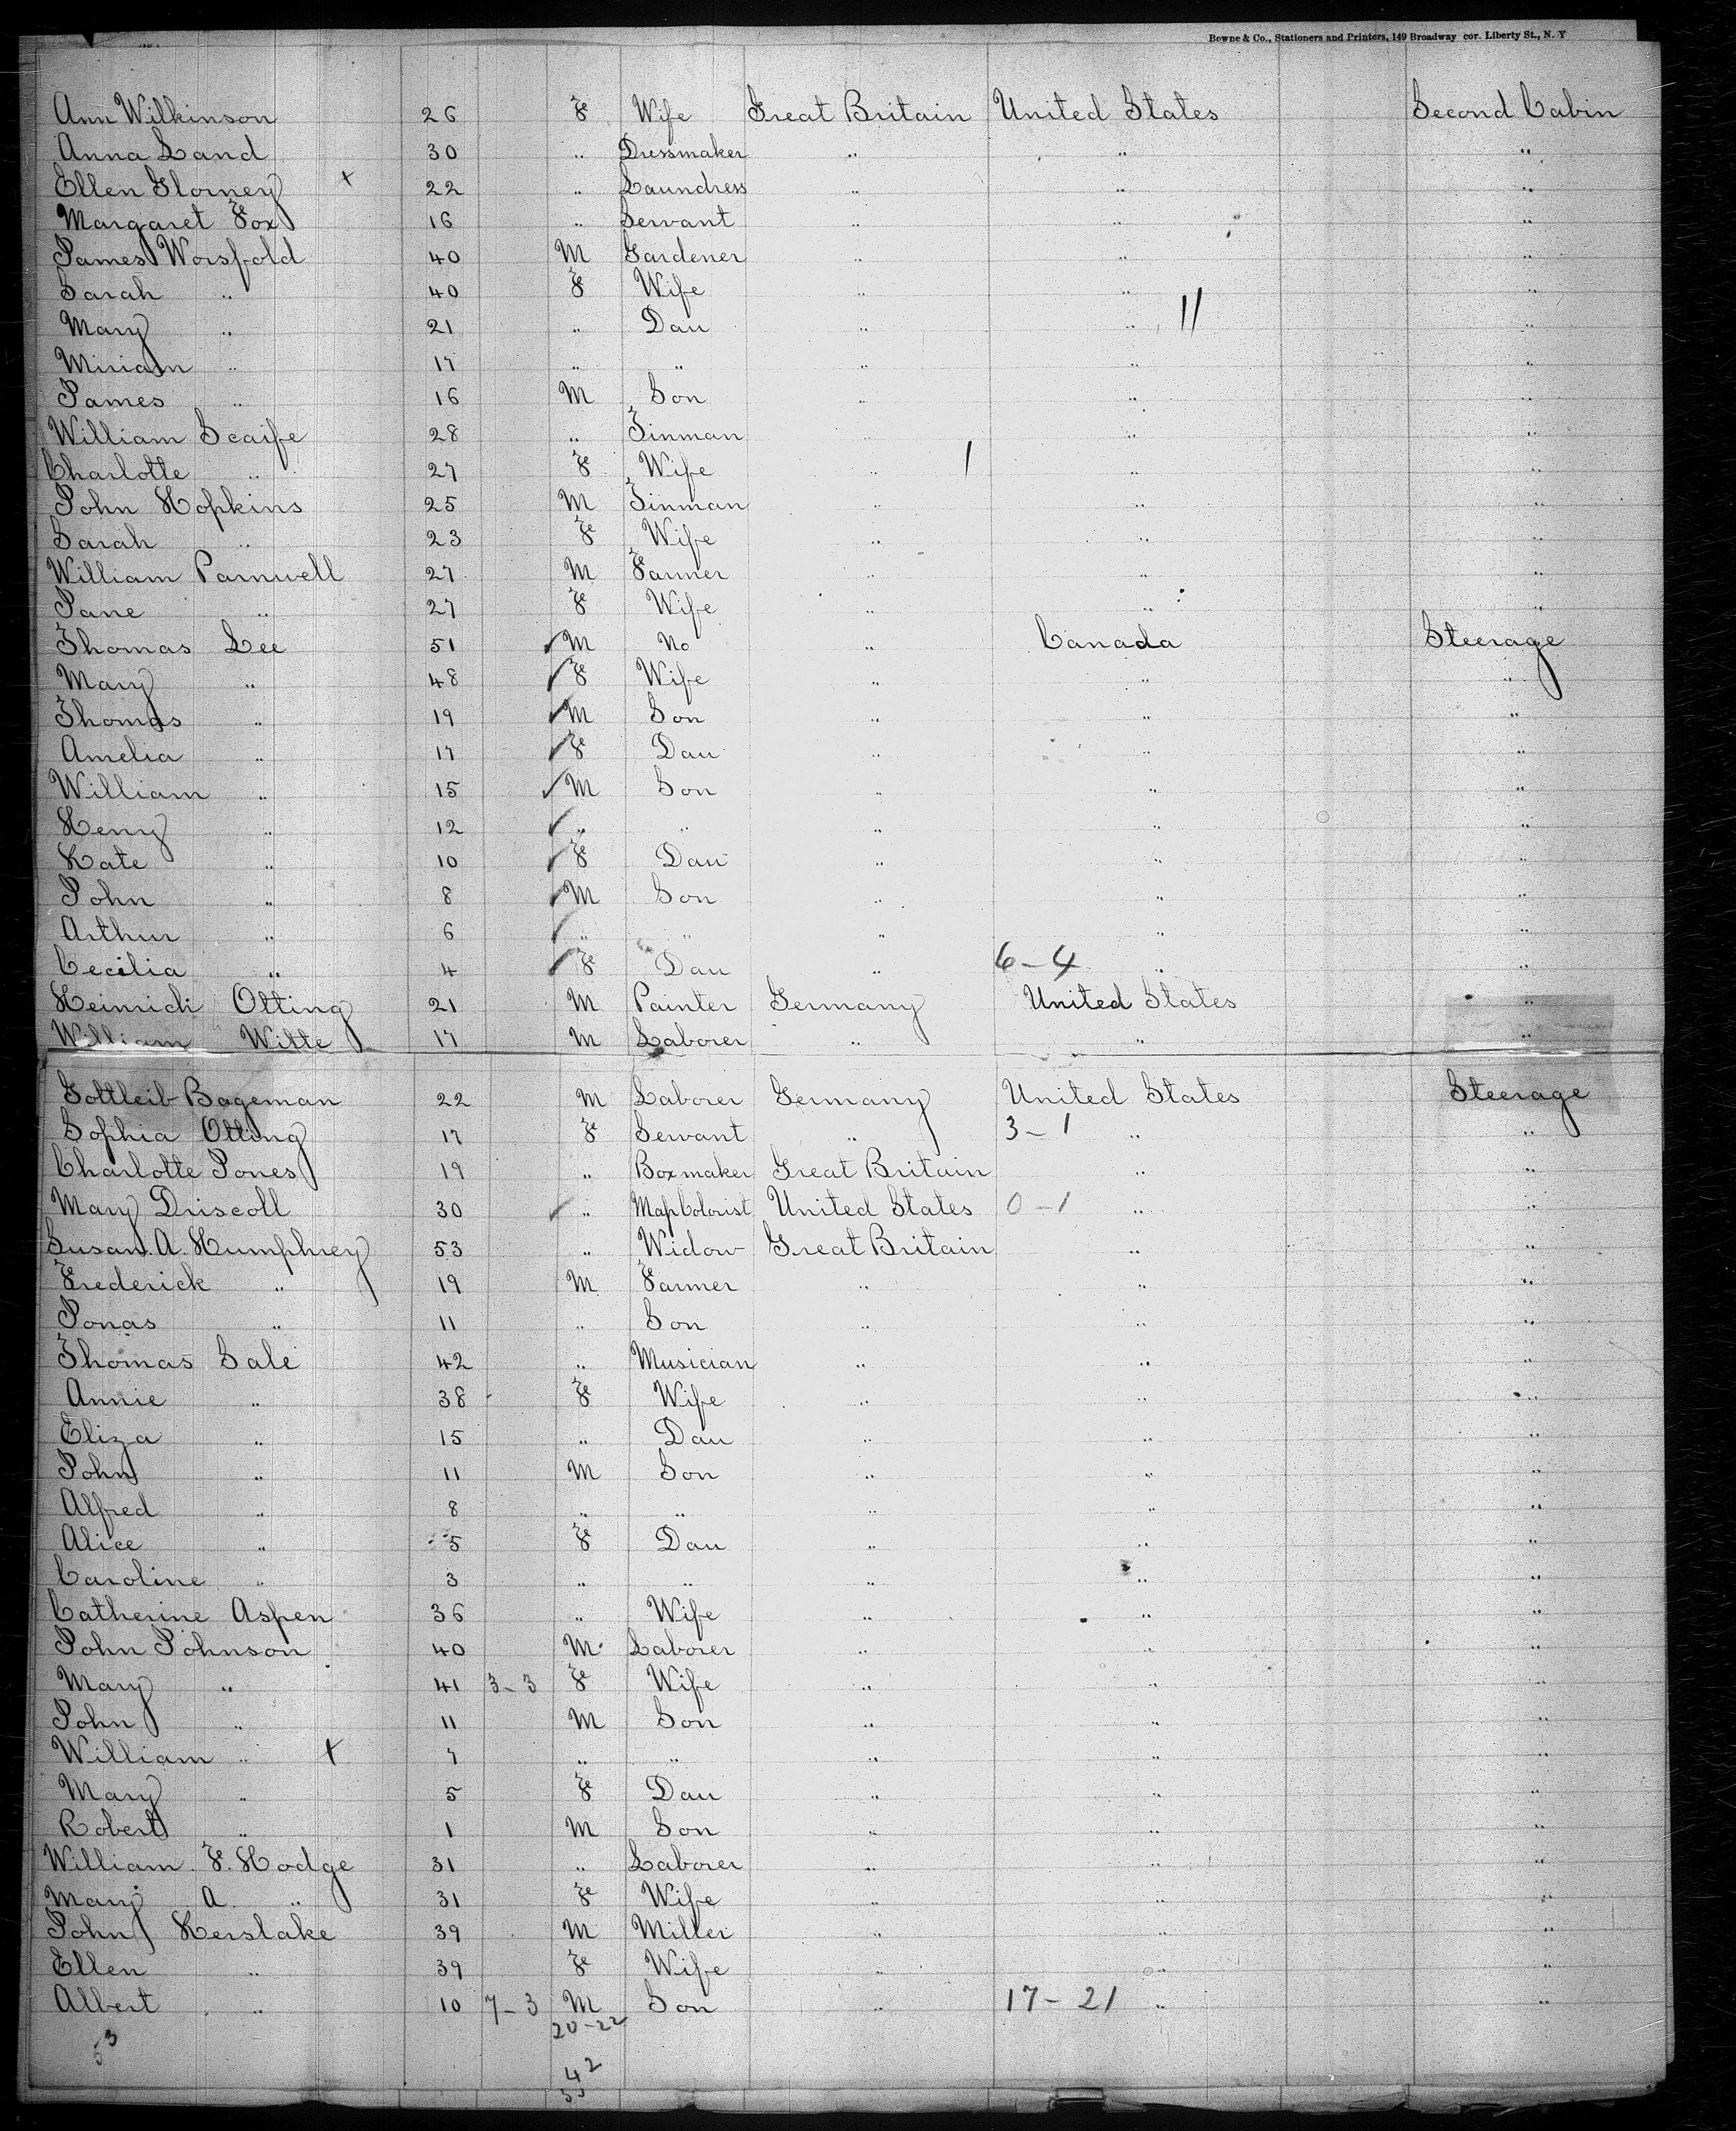 Bowne & Co., Stationers and Printers, 149 Broadway cor. Liberty St., N. Y
Ann Wilkinson 26 F Wife Great Britain United States Second Cabin
Anna Land 30 " Dressmaker " " "
Ellen Glorney x 22 " Laundress " " "
Margaret Fox 16 " Servant " " "
James Worsfold 40 M Gardener " " "
Sarah " 40 F Wife " " "
Mary " 21 " Dau " " 11 "
Miriam " 17 " " " " "
James " 16 M Son " " "
William Scaife 28 " Tinman " " "
Charlotte " 27 F Wife " 1 " "
John Hopkins 25 M Tinman " " "
Sarah " 23 F Wife " " "
William Parnwell 27 M Farmer " " "
Jane " 27 F Wife " " "
Thomas Lee 51 ✓ M No " Canada Steerage
Mary " 48 ✓ F Wife " " "
Thomas " 19 ✓ M Son " " "
Amelia " 17 ✓ F Dau " " "
William " 15 ✓ M Son " " "
Henry " 12 ✓ " " " " "
Kate " 10 ✓ F Dau " " "
John " 8 ✓ M Son " " "
Arthur " 6 ✓ " " " " "
Cecilia " 4 ✓ F Dau " 6-4 " "
Heinrich Otting 21 M Painter Germany United States "
William Witte 17 M Laborer " " "
Gottleib Bageman 22 M Laborer Germany United States Steerage
Sophia Otting 17 F Servant " 3-1 " "
Charlotte Jones 19 " Boxmaker Great Britain " "
Mary Driscoll 30 ✓ " Map Colorist United States 0-1 " "
Susan. A. Humphrey 53 " Widow Great Britain " "
Frederick " 19 M Farmer " " "
Jonas " 11 " Son " " "
Thomas Sale 42 " Musician " " "
Annie " 38 F Wife " " "
Eliza " 15 " Dau " " "
John " 11 M Son " " "
Alfred " 8 " " " " "
Alice " 5 F Dau " " "
Caroline " 3 " " " " "
Catherine Aspen 36 " Wife " " "
John Johnson 40 M Laborer " " "
Mary " 41 3-3 F Wife " " "
John " 11 M Son " " "
William " x 7 " " " " "
Mary " 5 F Dau " " "
Robert " 1 M Son " " "
William. F. Hodge 31 " Laborer " " "
Mary A. " 31 F Wife " " "
John Kerslake 39 M Miller " " "
Ellen " 39 F Wife " " "
Albert " 10 7-3 M Son " 17-21 " "
20-22
53
42